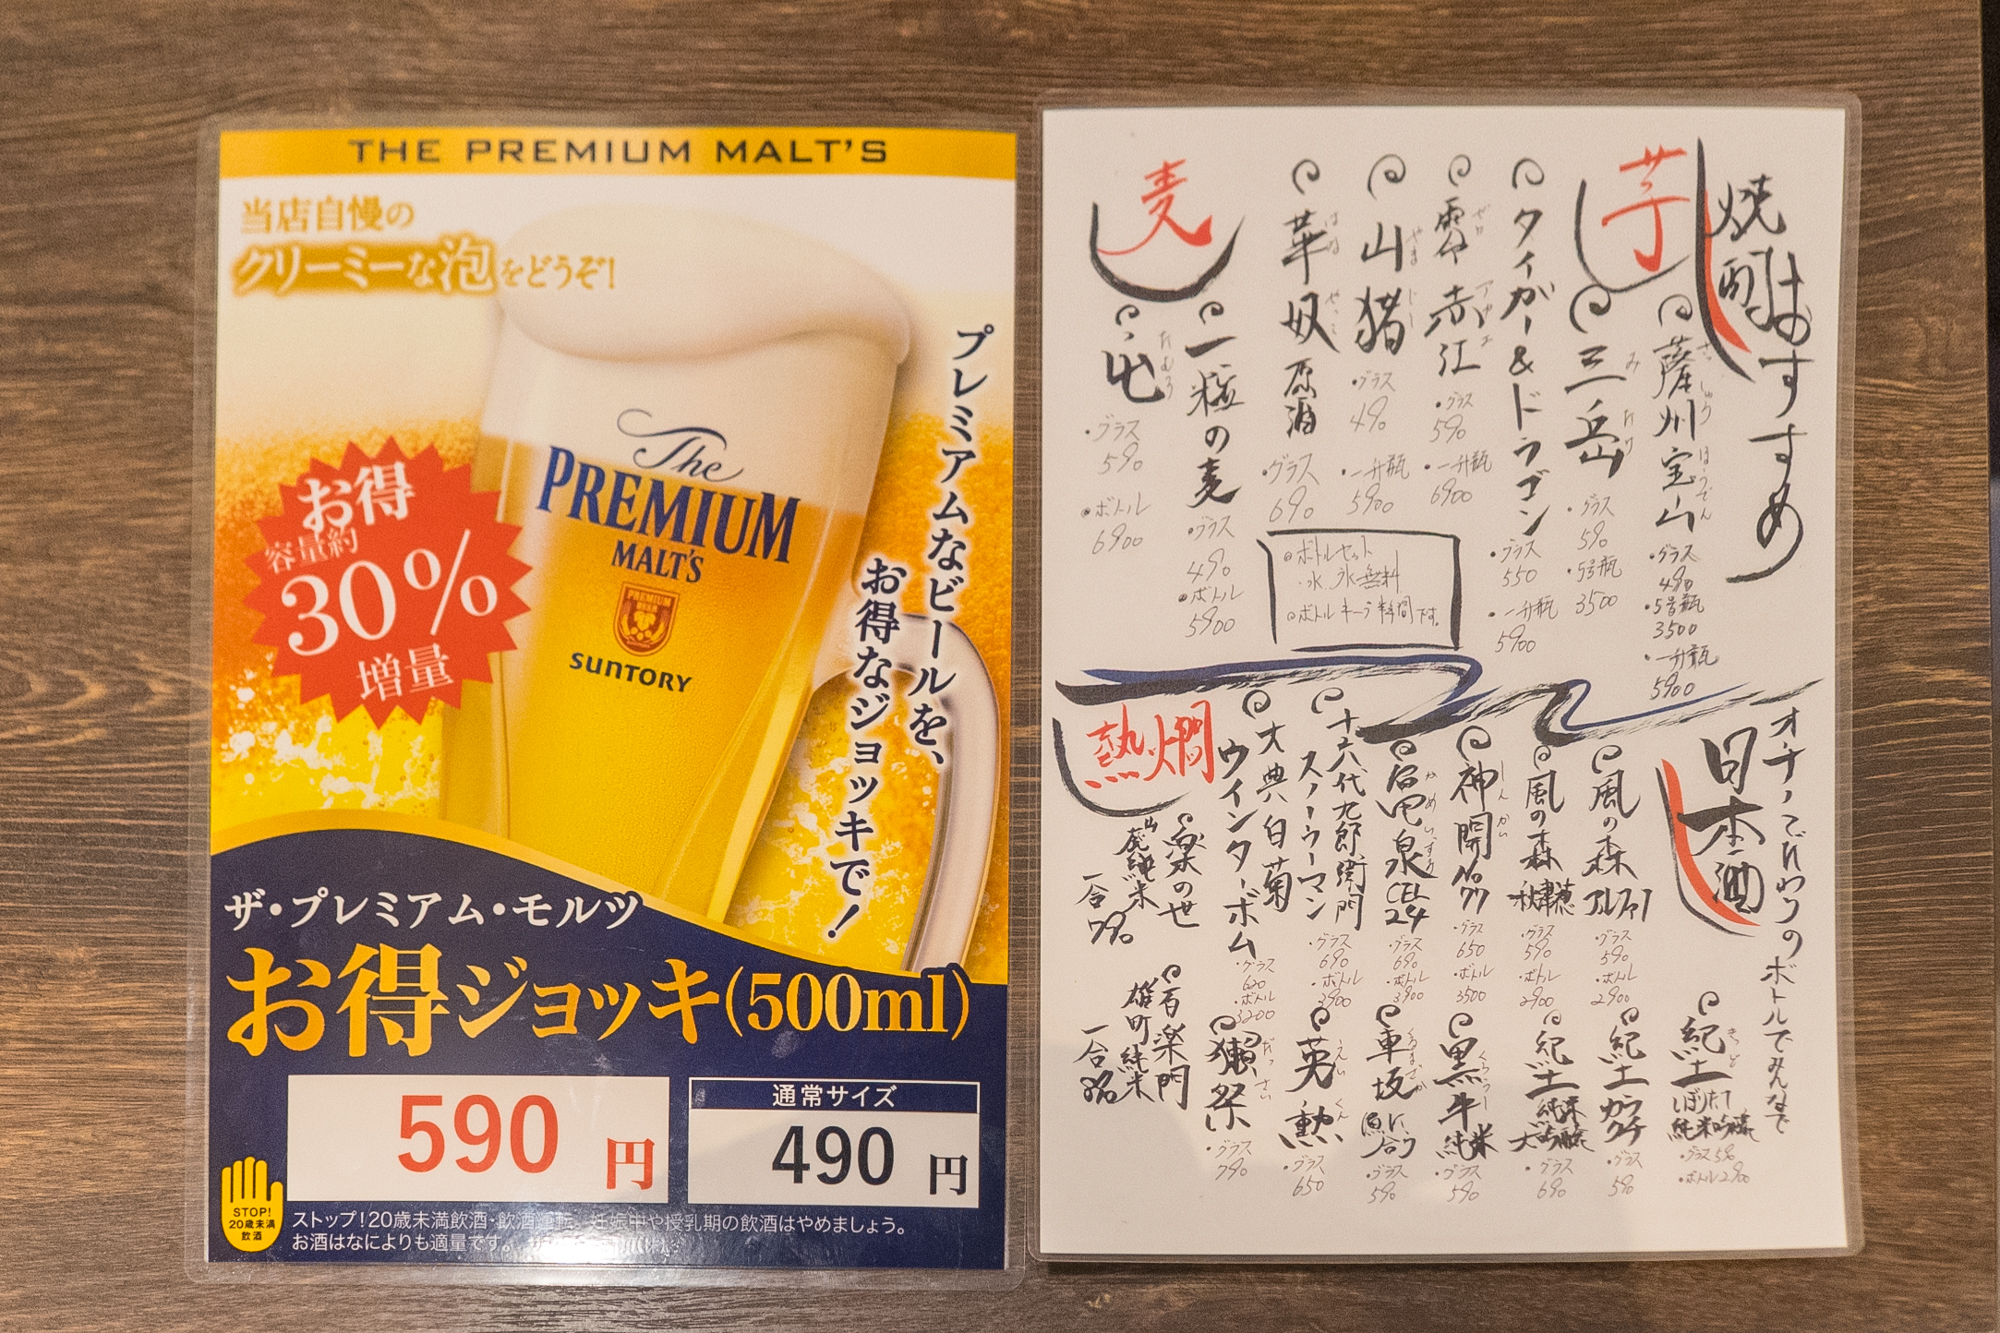 THE PREMIUM MALT'S
当店自慢の
クリーミーな泡をどうぞ!
プレミアムなビールを、
お得なジョッキで!
お得
容量約
30%
増量
The
PREMIUM
MALT'S
PREMIUM
BEER
SUNTORY
ザ・プレミアム・モルツ
お得ジョッキ(500ml)
590円
通常サイズ
490円
STOP!
20歳未満
飲酒
ストップ!20歳未満飲酒・飲酒運転。妊娠中や授乳期の飲酒はやめましょう。
お酒はなによりも適量です。
焼酎
おすすめ
芋
薩州宝山
さっしゅう ほうざん
・グラス
490
・5号瓶
3500
・一升瓶
5900
三岳
みたけ
・グラス
590
・5号瓶
3500
タイガー&ドラゴン
・グラス
550
・一升瓶
5900
赤江
・グラス
590
・一升瓶
6900
山猪
やまじし
・グラス
490
・一升瓶
5900
華奴
はなやっこ
原酒
・グラス
690
麦
一粒の麦
・グラス
490
・ボトル
5900
屯
たむろ
・グラス
590
・ボトル
6900
・ボトルセット
・水、氷無料
日本酒
のボトルでみんなで
風の森
アルファ1
・グラス
590
・ボトル
2900
風の森
秋津穂
・グラス
590
・ボトル
2900
神開
しんかい
No77
・グラス
650
・ボトル
3500
亀甲泉
かめいずみ
CEL
24
・グラス
690
・ボトル
3900
十六代九郎衛門
スノーウーマン
・グラス
690
・ボトル
3900
大典八白菊
ウインターボム
・グラス
620
・ボトル
3200
紀土
きっど
しぼりたて
純米吟醸
・グラス590
・ボトル2900
紀土
カラクチ
・グラス
590
紀土
純米
大吟醸
・グラス
690
黒牛
くろうし
純米
・グラス
590
車坂
くるまざか
魚に合う
・グラス
590
英勲
えいくん
・グラス
650
獺祭
だっさい
・グラス
790
熱燗
楽の世
山廃純米
一合
790
百楽門
雄町純米
一合